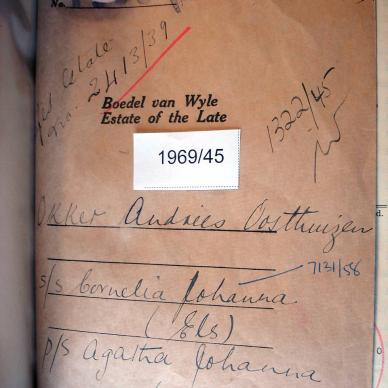 No.
Old Estate
No. 2413/39
Boedel van Wyle
Estate of the Late
1322/45
1969/45
Okker Andries Oosthuizen
7131/58
s/s Cornelia Johanna
(Els)
p/s Agatha Johanna
d.